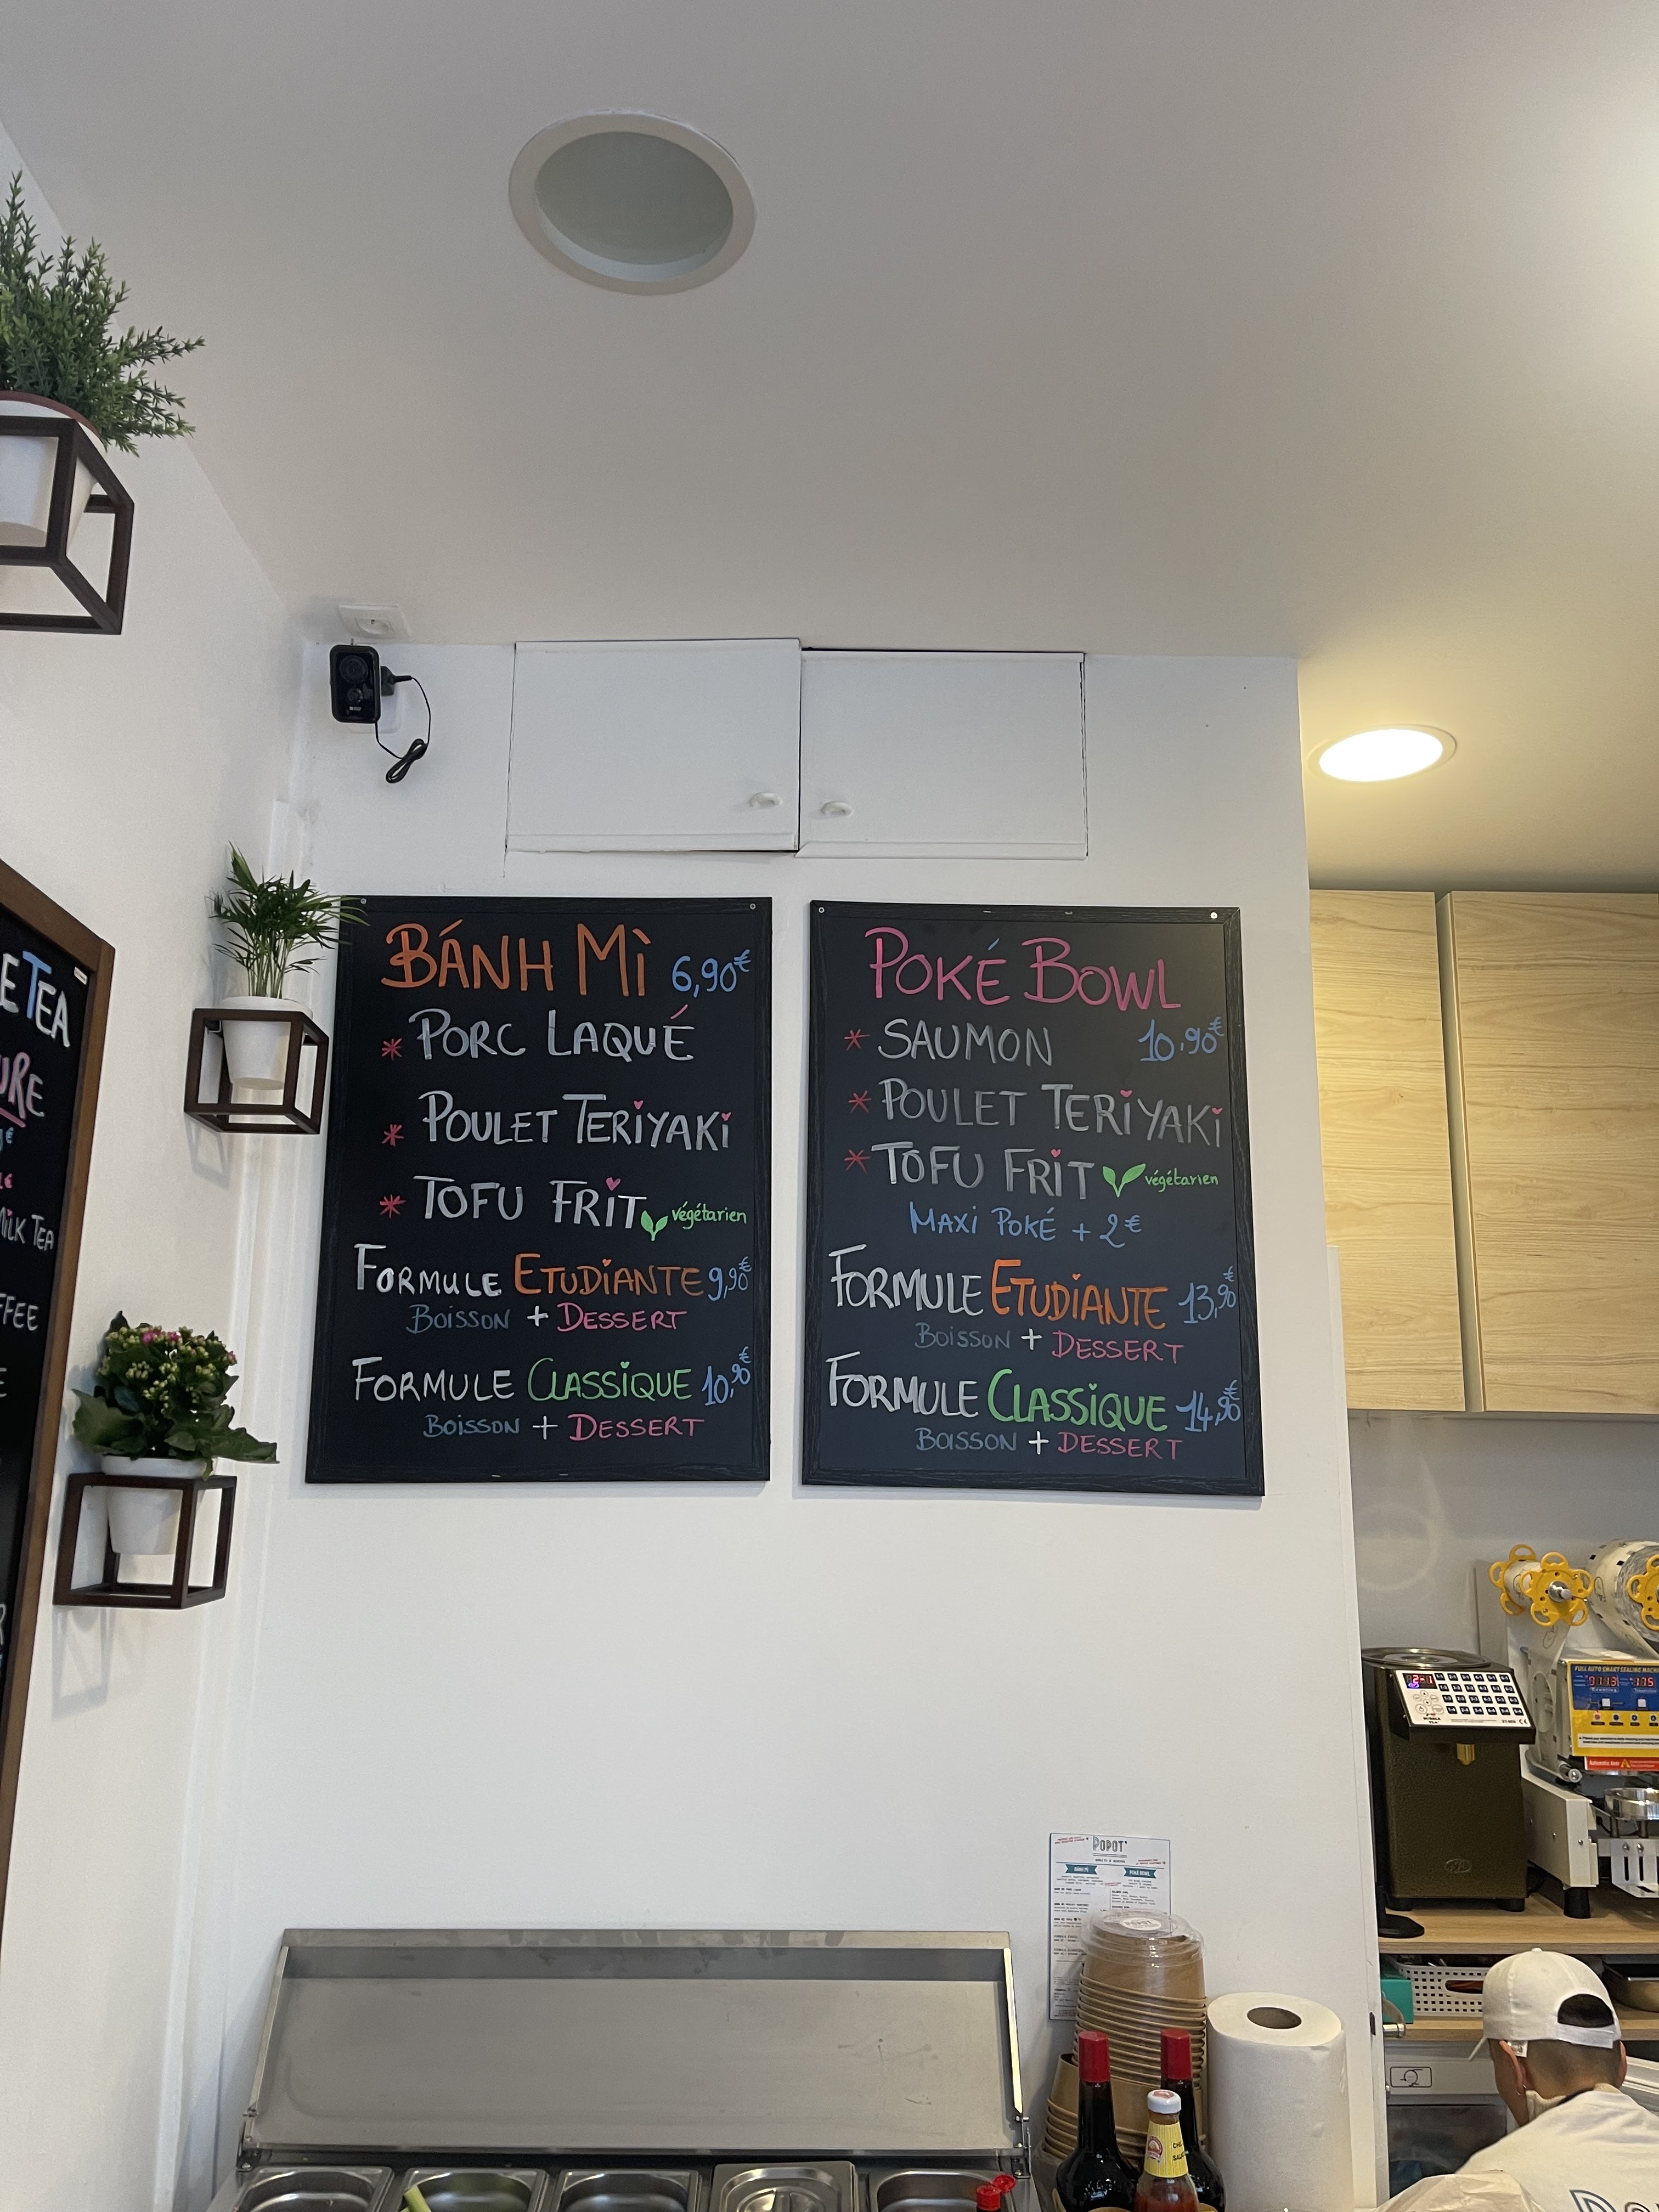 TEA
MILK TEA
BÁNH MÌ 6,90€
* PORC LAQUÉ
* POULET TERIYAKI
* TOFU FRIT végétarien
FORMULE ETUDIANTE 9,90€
BOISSON + DESSERT
FORMULE CLASSIQUE 10,90€
BOISSON + DESSERT
POKÉ BOWL
* SAUMON 10.90€
* POULET TERIYAKI
* TOFU FRIT végétarien
MAXI POKÉ + 2€
FORMULE ETUDIANTE 13,90€
BOISSON + DESSERT
FORMULE CLASSIQUE 14,90€
BOISSON + DESSERT
FULL AUTO SMART SEALING MACHINE
POPOT'
BÁNH MÌ
POKÉ BOWL